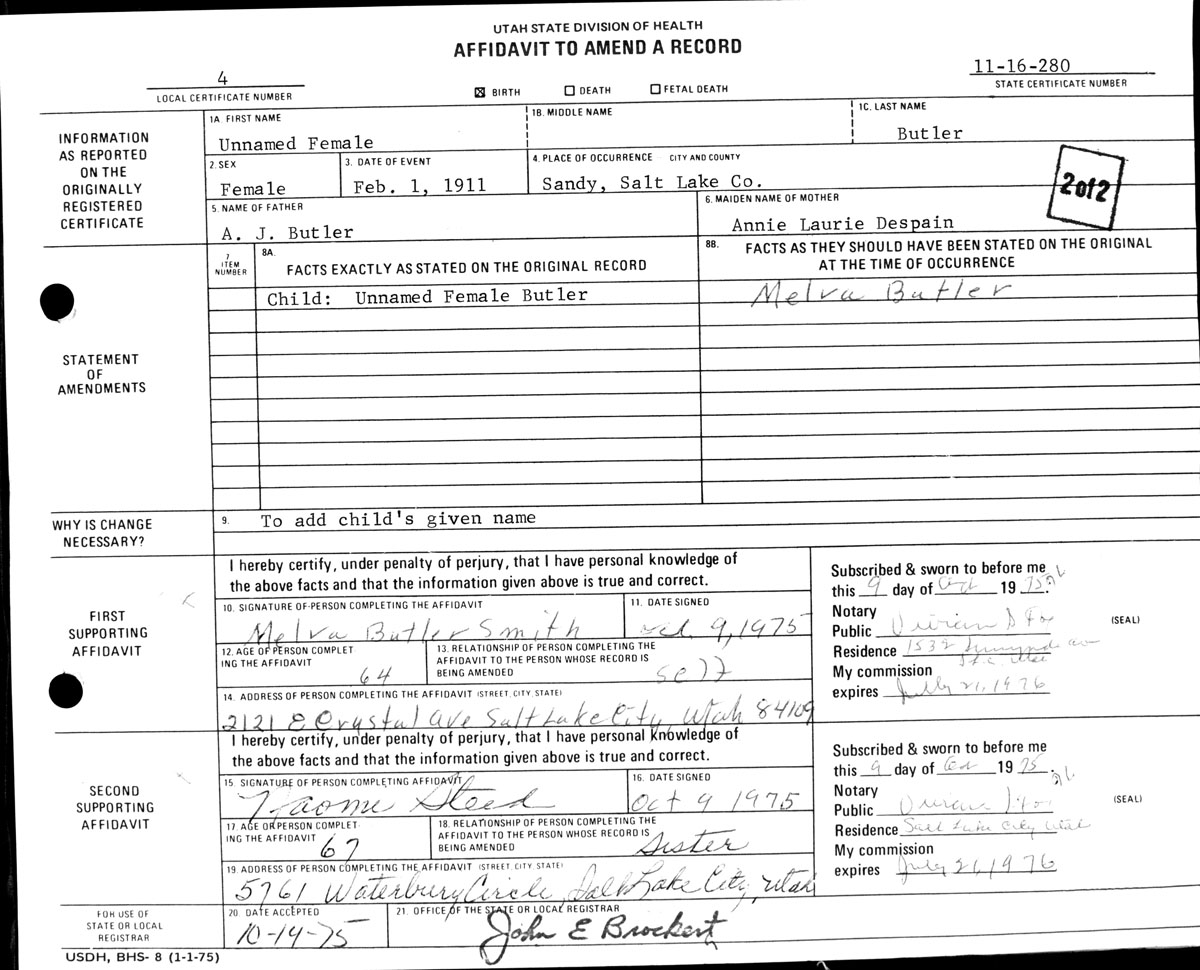 UTAH STATE DIVISION OF HEALTH
AFFIDAVIT TO AMEND A RECORD
4
LOCAL CERTIFICATE NUMBER
☒ BIRTH ☐ DEATH ☐ FETAL DEATH
11-16-280
STATE CERTIFICATE NUMBER
INFORMATION
AS REPORTED
ON THE
ORIGINALLY
REGISTERED
CERTIFICATE
1A FIRST NAME
Unnamed Female
1B. MIDDLE NAME
1C. LAST NAME
Butler
2. SEX
Female
3. DATE OF EVENT
Feb. 1, 1911
4. PLACE OF OCCURRENCE CITY AND COUNTY
Sandy, Salt Lake Co.
2 of 2
5. NAME OF FATHER
A. J. Butler
6. MAIDEN NAME OF MOTHER
Annie Laurie Despain
STATEMENT
OF
AMENDMENTS
7
ITEM
NUMBER
8A.
FACTS EXACTLY AS STATED ON THE ORIGINAL RECORD
8B.
FACTS AS THEY SHOULD HAVE BEEN STATED ON THE ORIGINAL
AT THE TIME OF OCCURRENCE
Child: Unnamed Female Butler
Melva Butler
WHY IS CHANGE
NECESSARY?
9. To add child's given name
FIRST
SUPPORTING
AFFIDAVIT
I hereby certify, under penalty of perjury, that I have personal knowledge of
the above facts and that the information given above is true and correct.
10. SIGNATURE OF PERSON COMPLETING THE AFFIDAVIT
Melva Butler Smith
11. DATE SIGNED
Oct. 9, 1975
12. AGE OF PERSON COMPLET
ING THE AFFIDAVIT
64
13. RELATIONSHIP OF PERSON COMPLETING THE
AFFIDAVIT TO THE PERSON WHOSE RECORD IS
BEING AMENDED
self
14. ADDRESS OF PERSON COMPLETING THE AFFIDAVIT (STREET, CITY, STATE)
2121 E Crystal Ave Salt Lake City, Utah 84109
Subscribed & sworn to before me
this 9 day of Oct 1975.
Notary
Public Vivian D Fox
(SEAL)
Residence 1532
My commission
expires July 21, 1976
SECOND
SUPPORTING
AFFIDAVIT
I hereby certify, under penalty of perjury, that I have personal knowledge of
the above facts and that the information given above is true and correct.
15. SIGNATURE OF PERSON COMPLETING AFFIDAVIT
Naomi Steed
16. DATE SIGNED
Oct 9 1975
17. AGE OR PERSON COMPLET-
ING THE AFFIDAVIT
67
18. RELATIONSHIP OF PERSON COMPLETING THE
AFFIDAVIT TO THE PERSON WHOSE RECORD IS
BEING AMENDED
Sister
19. ADDRESS OF PERSON COMPLETING THE AFFIDAVIT (STREET, CITY, STATE)
5761 Waterbury Circle, Salt Lake City, Utah
Subscribed & sworn to before me
this 9 day of Oct 1975.
Notary
Public Vivian D Fox
(SEAL)
Residence Salt Lake City Utah
My commission
expires July 21, 1976
FOR USE OF
STATE OR LOCAL
REGISTRAR
20. DATE ACCEPTED
10-14-75
21. OFFICE OF THE STATE OR LOCAL REGISTRAR
John E Brockert
USDH, BHS- 8 (1-1-75)